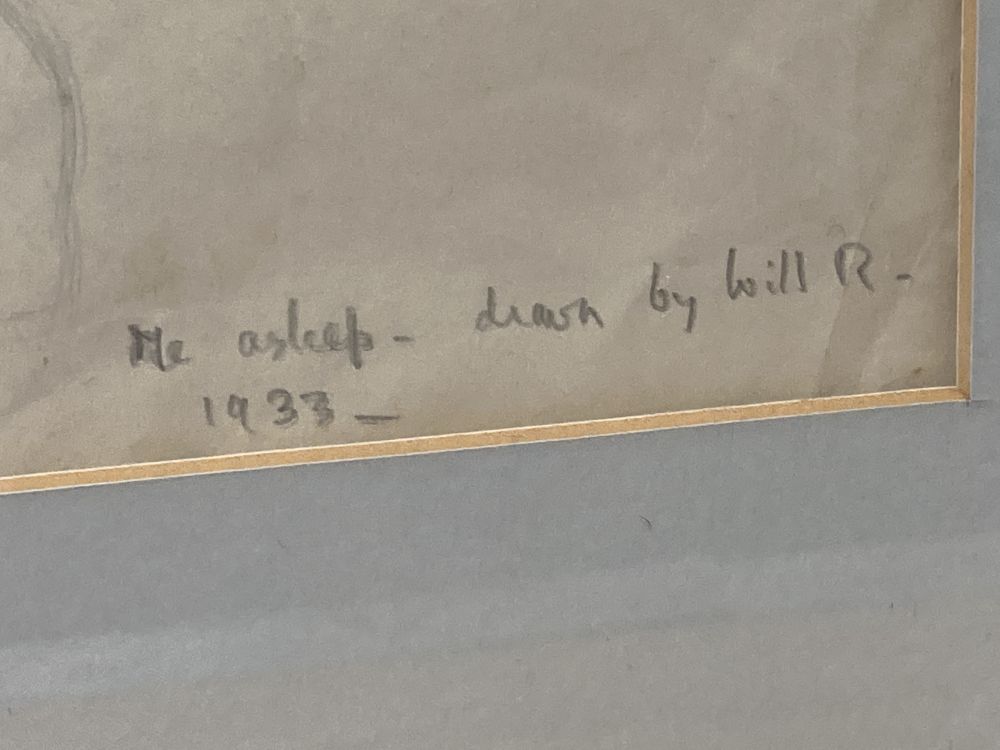 Me asleep - drawn by Will R -
1933 —